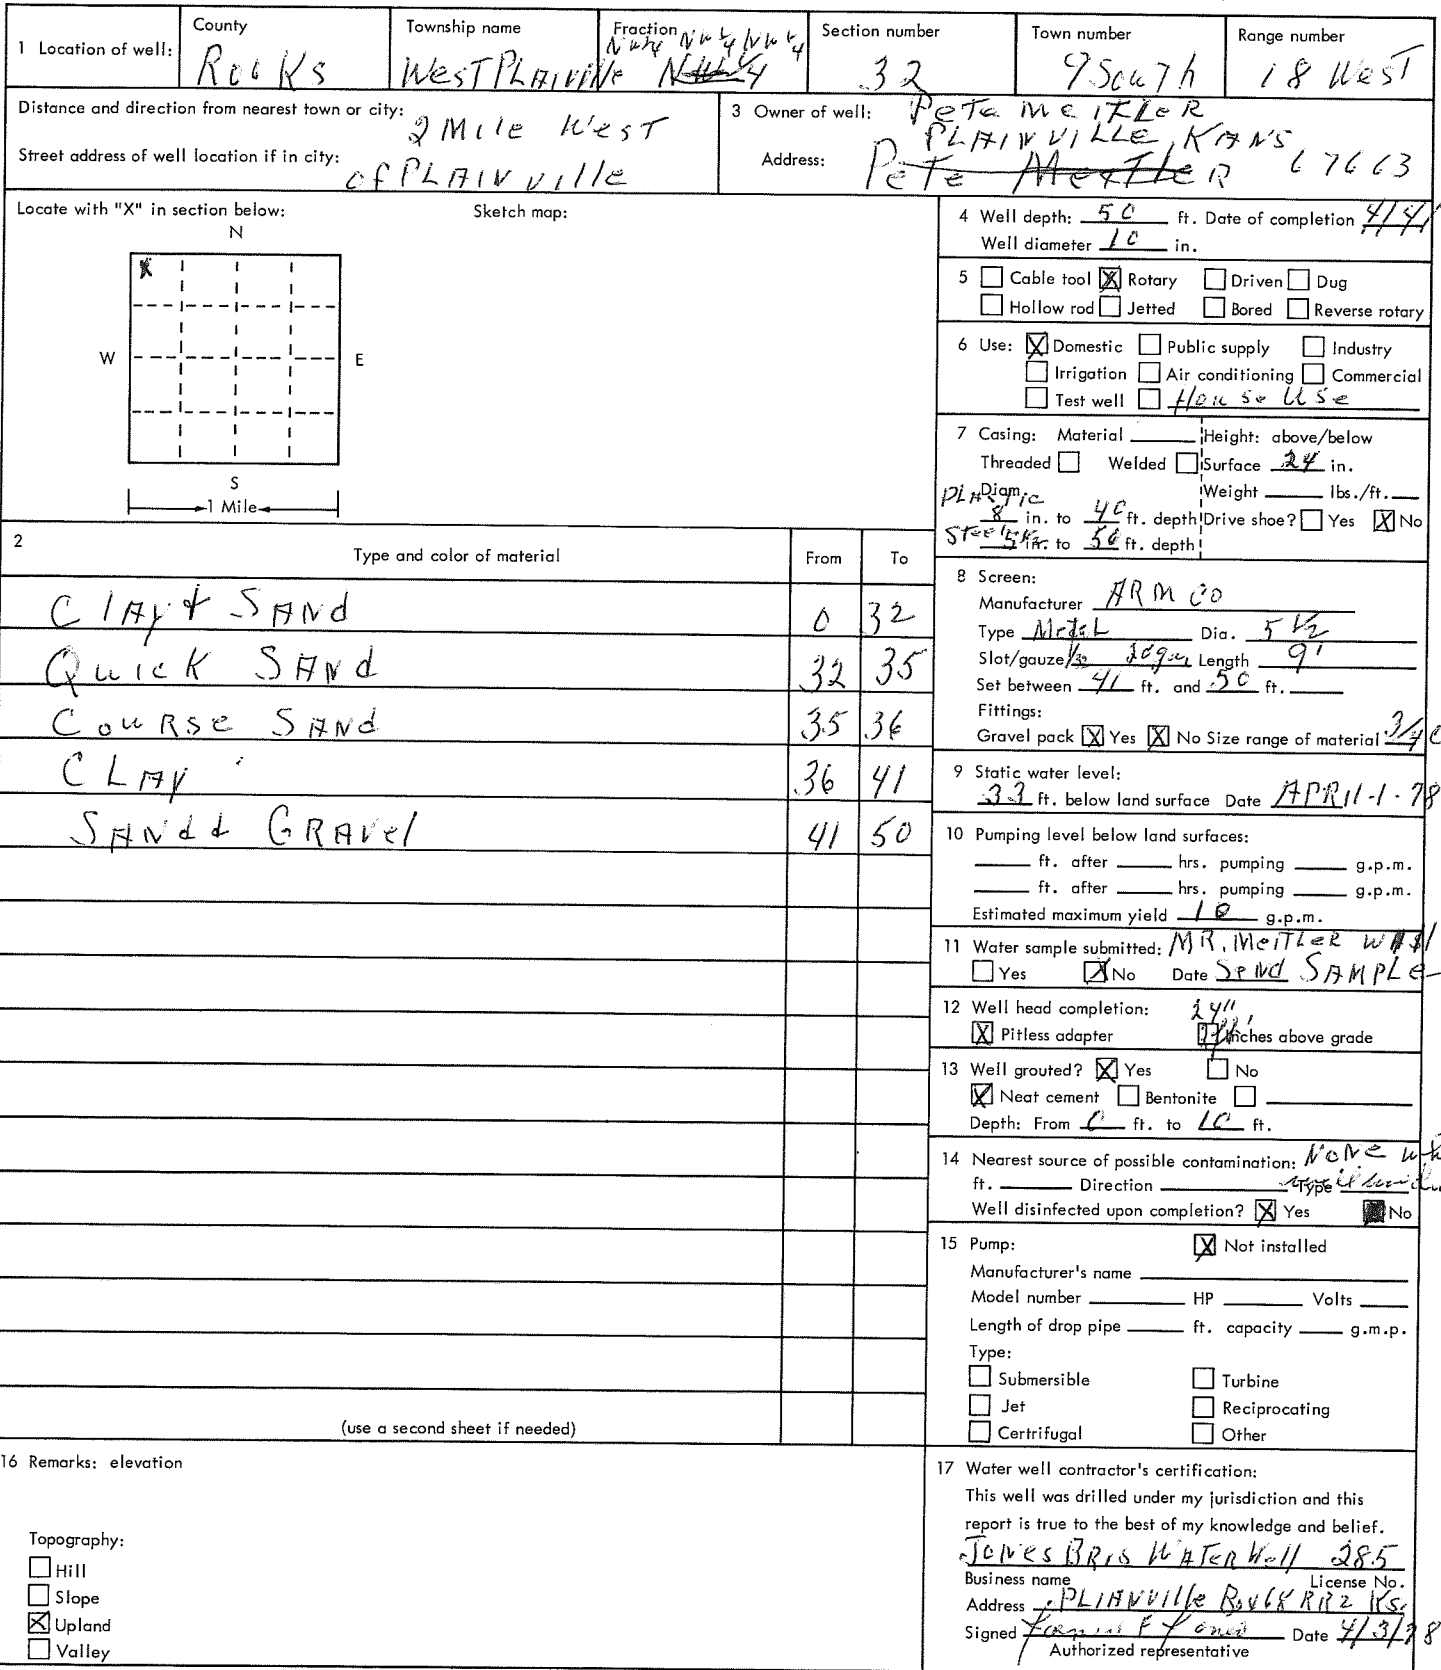 1 Location of well:
County
Rocks
Township name
West Plainville
Fraction
NW 1/4 NW 1/4 NW 1/4
NW 1/4
Section number
32
Town number
9 South
Range number
18 West
Distance and direction from nearest town or city: 2 Mile West
Street address of well location if in city: of Plainville
3 Owner of well: Pete Meitler
Plainville, Kans
Address: Pete Meitler 67663
Locate with "X" in section below:
Sketch map:
N
X
W E
S
1 Mile
4 Well depth: 50 ft. Date of completion
Well diameter 10 in.
5 Cable tool X Rotary Driven Dug
Hollow rod Jetted Bored Reverse rotary
6 Use: X Domestic Public supply Industry
Irrigation Air conditioning Commercial
Test well House Use
7 Casing: Material Height: above/below
Threaded Welded Surface 24 in.
Diam. Weight lbs./ft.
Plastic
8 in. to 40 ft. depth Drive shoe? Yes X No
Steel
5 in. to 50 ft. depth
2
Type and color of material From To
Clay & Sand 0 32
Quick Sand 32 35
Course Sand 35 36
Clay 36 41
Sand & Gravel 41 50
(use a second sheet if needed)
8 Screen:
Manufacturer ARMCO
Type Metal Dia. 5 1/2
Slot/gauze 1/32 Length 9'
Set between 41 ft. and 50 ft.
Fittings:
Gravel pack X Yes X No Size range of material
9 Static water level:
33 ft. below land surface Date April-1-78
10 Pumping level below land surfaces:
ft. after hrs. pumping g.p.m.
ft. after hrs. pumping g.p.m.
Estimated maximum yield 10 g.p.m.
11 Water sample submitted: Mr. Meitler will
Yes X No Date Send Sample
12 Well head completion: 24"
X Pitless adapter Inches above grade
13 Well grouted? X Yes No
X Neat cement Bentonite
Depth: From 0 ft. to 10 ft.
14 Nearest source of possible contamination: None
ft. Direction Type
Well disinfected upon completion? X Yes No
15 Pump: X Not installed
Manufacturer's name
Model number HP Volts
Length of drop pipe ft. capacity g.m.p.
Type:
Submersible Turbine
Jet Reciprocating
Certrifugal Other
16 Remarks: elevation
Topography:
Hill
Slope
X Upland
Valley
17 Water well contractor's certification:
This well was drilled under my jurisdiction and this
report is true to the best of my knowledge and belief.
Jones Bros Water Well 285
Business name License No.
Address Plianville Box 68 RR2 Ks.
Signed Date 4/3/78
Authorized representative